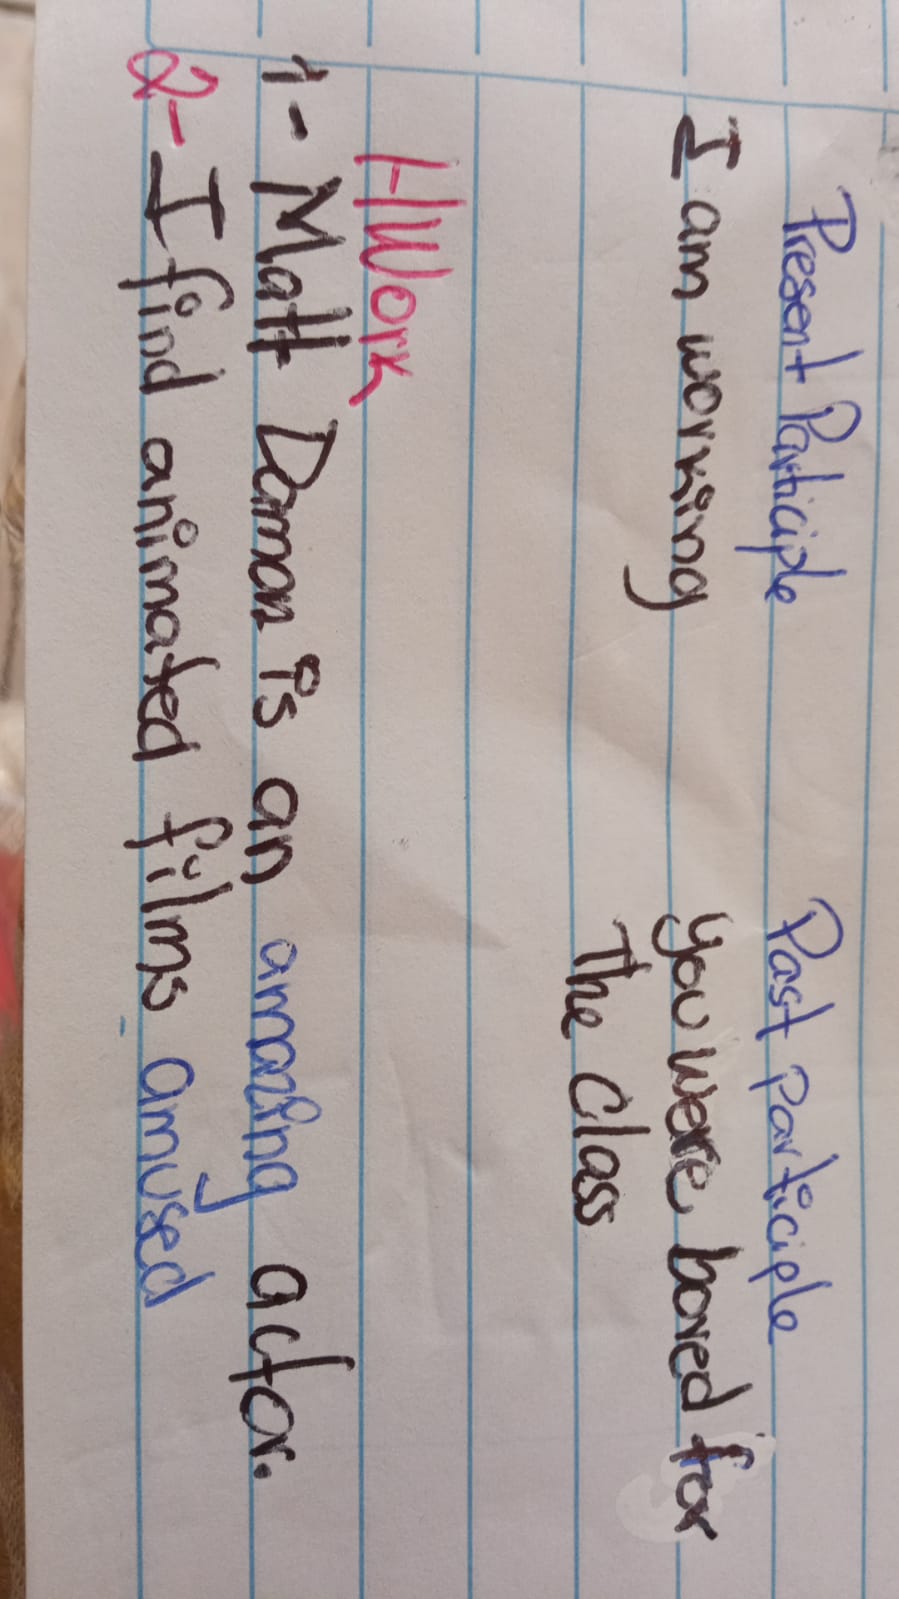 Present Participle Past Participle
I am working you were bored for
The class
HWork
1- Matt Damon is an amazing actor.
2- I find animated films amused